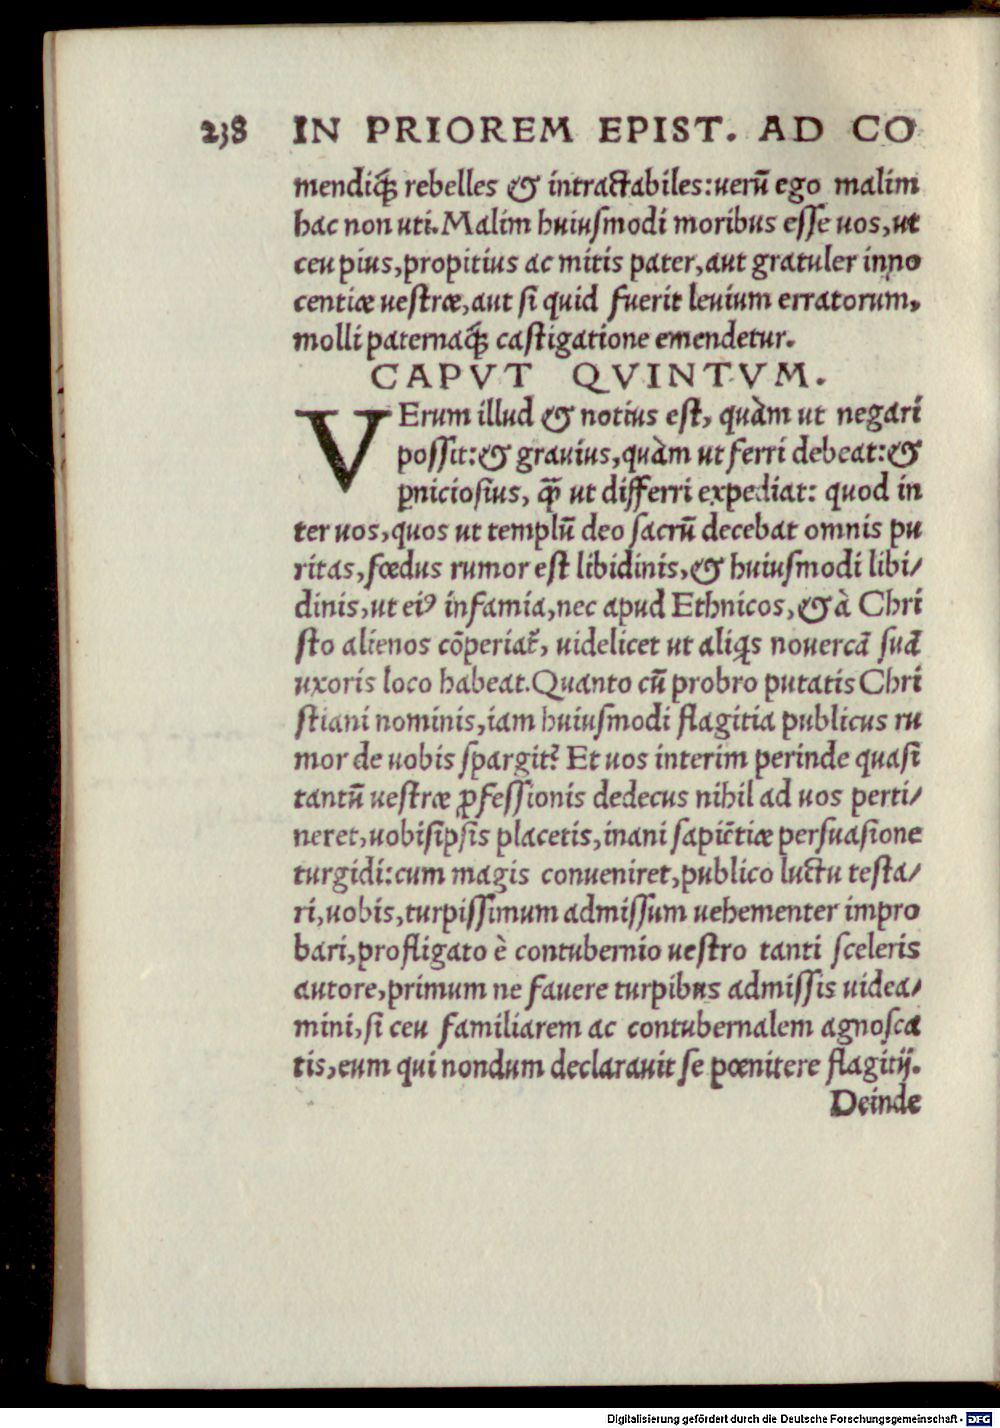 238 IN PRIOREM EPIST. AD CO
mendiq́ꝫ rebelles & intractabiles:uerū ego malim
hac non uti.Malim huiuſmodi moribus eſſe uos,ut
ceu pius,propitius ac mitis pater,aut gratuler inno
centiæ ueſtræ,aut ſi quid fuerit leuium erratorum,
molli paternaq́ꝫ caſtigatione emendetur.
CAPVT QVINTVM.
VErum illud & notius eſt, quàm ut negari
poſſit:& grauius,quàm ut ferri debeat:&
ꝑnicioſius, q̃ꝫ ut differri expediat: quod in
ter uos,quos ut templū deo ſacrū decebat omnis pu
ritas,fœdus rumor eſt libidinis,& huiuſmodi libi/
dinis,ut eiꝰ infamia,nec apud Ethnicos,& à Chri
ſto alienos cōperiat᷑, uidelicet ut aliꝗs nouercā ſuā
uxoris loco habeat.Quanto cū probro putatis Chri
ſtiani nominis,iam huiuſmodi flagitia publicus ru
mor de uobis ſpargit᷑? Et uos interim perinde quaſi
tantū ueſtræ ꝓfeſſionis dedecus nihil ad uos perti/
neret,uobiſipſis placetis,inani ſapiētiæ perſuaſione
turgidi:cum magis conueniret,publico luctu teſta/
ri,uobis,turpiſſimum admiſſum uehementer impro
bari,profligato è contubernio ueſtro tanti ſceleris
autore,primum ne fauere turpibus admiſſis uidea/
mini,ſi ceu familiarem ac contubernalem agnoſca
tis,eum qui nondum declarauit ſe pœnitere flagitij.
Deinde
Digitalisierung gefördert durch die Deutsche Forschungsgemeinschaft - DFG